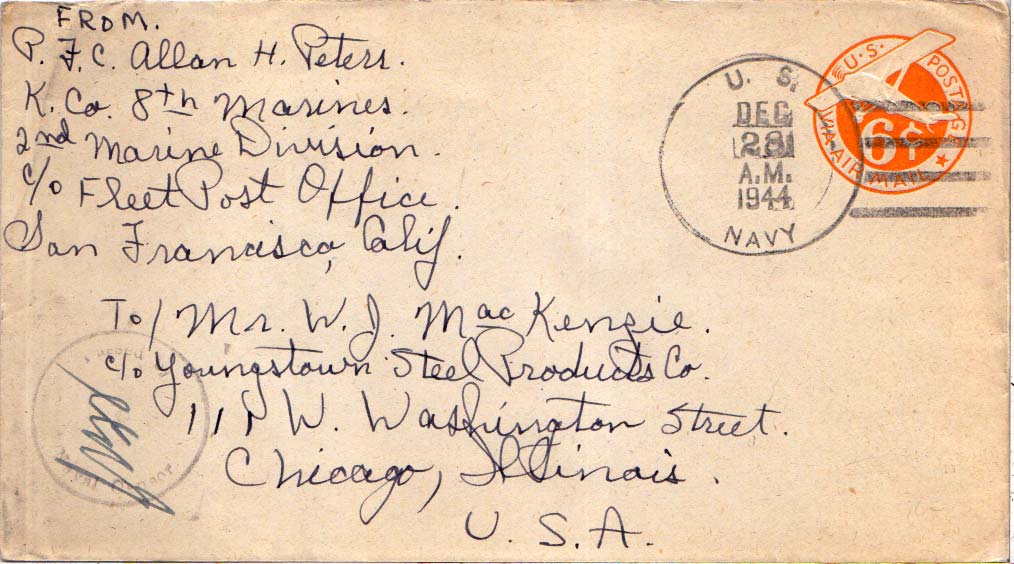 FROM.
P.F.C. Allan H. Peters.
K. Co. 8th Marines.
2nd Marine Division.
c/o Fleet Post Office.
San Francisco, Calif.
U. S.
DEC
28
A.M.
1944
NAVY
U.S. POSTAGE
6¢
VIA AIR MAIL
To/ Mr. W. J. MacKenzie.
c/o Youngstown Steel Products Co.
111 W. Washington Street.
Chicago, Illinois.
U. S. A.